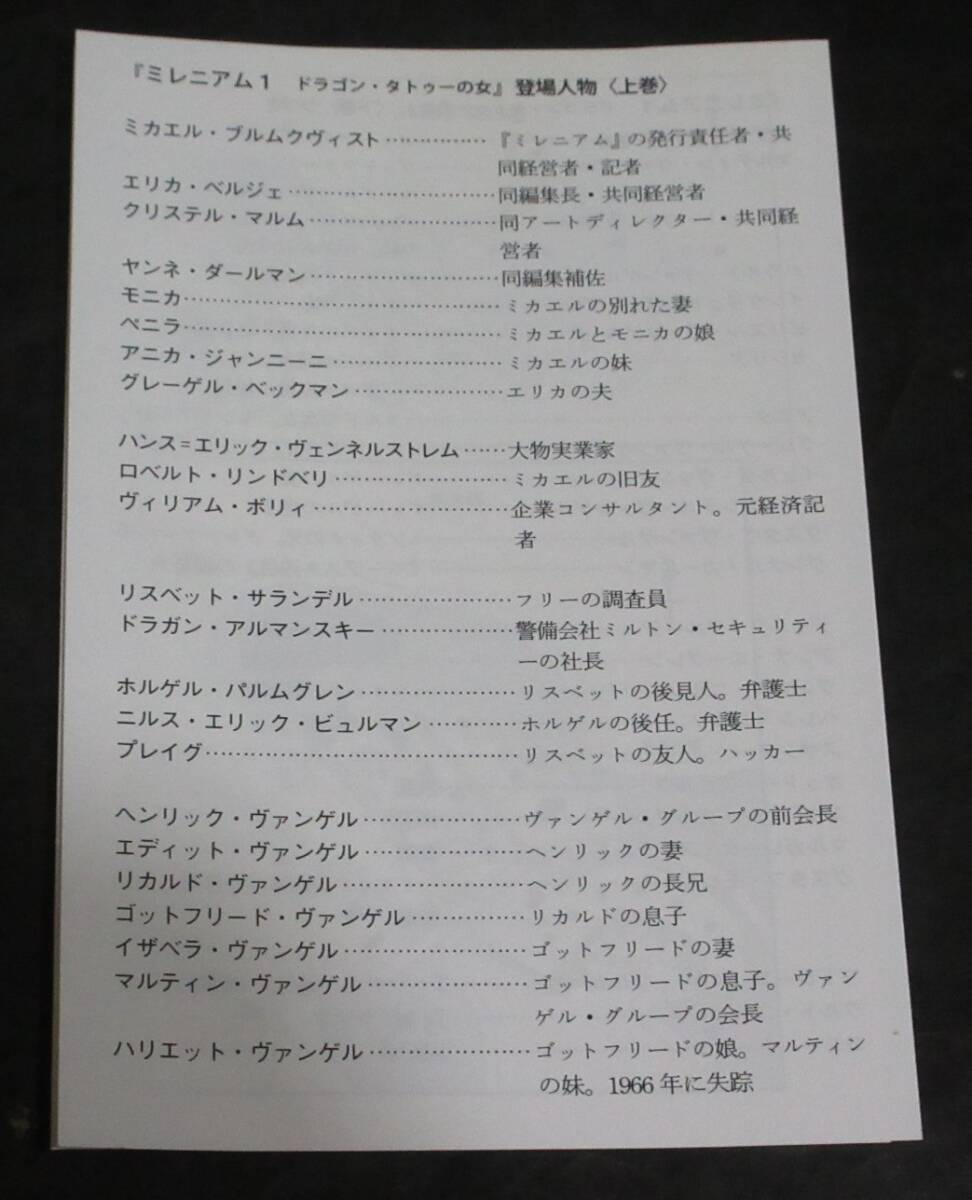 『ミレニアム1　ドラゴン・タトゥーの女』登場人物〈上巻〉
ミカエル・ブルムクヴィスト……………『ミレニアム』の発行責任者・共
同経営者・記者
エリカ・ベルジェ…………………………同編集長・共同経営者
クリステル・マルム………………………同アートディレクター・共同経
営者
ヤンネ・ダールマン………………………同編集補佐
モニカ………………………………………ミカエルの別れた妻
ペニラ………………………………………ミカエルとモニカの娘
アニカ・ジャンニーニ……………………ミカエルの妹
グレーゲル・ベックマン…………………エリカの夫
ハンス＝エリック・ヴェンネルストレム……大物実業家
ロベルト・リンドベリ……………………ミカエルの旧友
ヴィリアム・ボリィ………………………企業コンサルタント。元経済記
者
リスベット・サランデル…………………フリーの調査員
ドラガン・アルマンスキー………………警備会社ミルトン・セキュリティ
ーの社長
ホルゲル・パルムグレン…………………リスベットの後見人。弁護士
ニルス・エリック・ビュルマン…………ホルゲルの後任。弁護士
プレイグ……………………………………リスベットの友人。ハッカー
ヘンリック・ヴァンゲル…………………ヴァンゲル・グループの前会長
エディット・ヴァンゲル…………………ヘンリックの妻
リカルド・ヴァンゲル……………………ヘンリックの長兄
ゴットフリード・ヴァンゲル……………リカルドの息子
イザベラ・ヴァンゲル……………………ゴットフリードの妻
マルティン・ヴァンゲル…………………ゴットフリードの息子。ヴァン
ゲル・グループの会長
ハリエット・ヴァンゲル…………………ゴットフリードの娘。マルティン
の妹。1966年に失踪